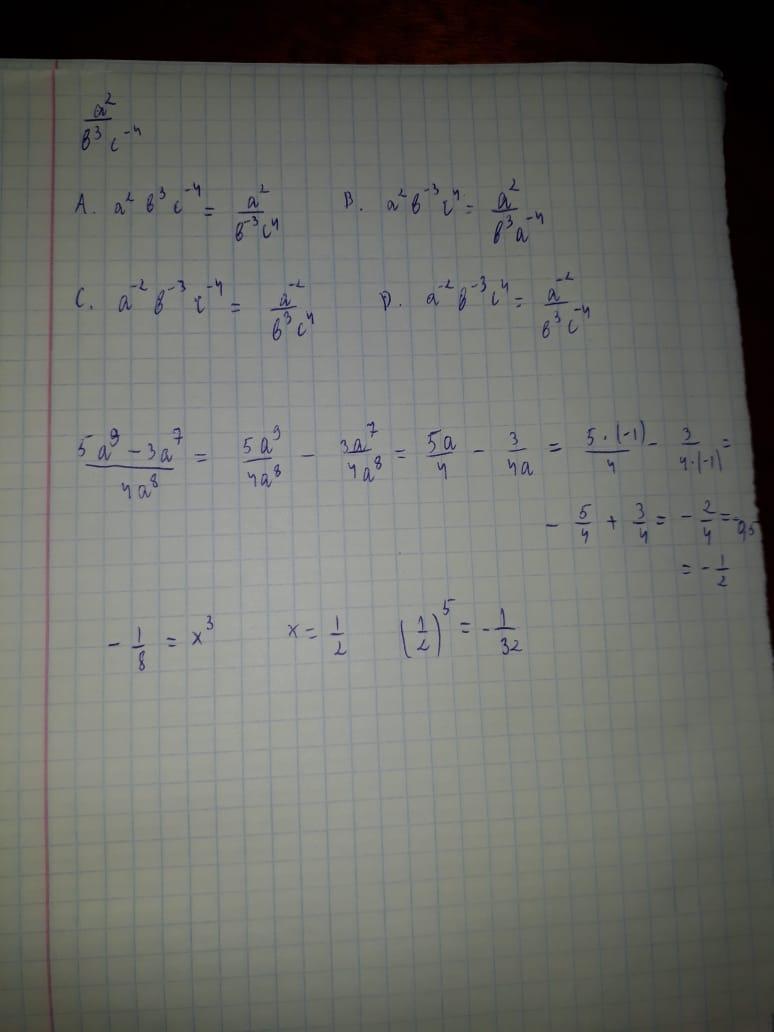 a²/в³c⁻⁴
A. a²в³c⁻⁴ = a²/в⁻³c⁴ B. a²в⁻³c⁴ = a²/в³a⁻⁴
C. a⁻²в⁻³c⁻⁴ = a⁻²/в³c⁴ D. a⁻²в⁻³c⁴ = a⁻²/в³c⁻⁴
(5a⁹ − 3a⁷)/4a⁸ = 5a⁹/4a⁸ − 3a⁷/4a⁸ = 5a/4 − 3/4a = 5·(−1)/4 − 3/4·(−1) =
− 5/4 + 3/4 = − 2/4 = −0,5
= − 1/2
− 1/8 = x³ x = 1/2 (1/2)⁵ = − 1/32